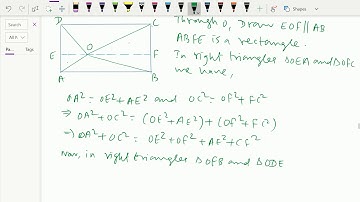 Search
All A
Pa...
D
C
Through O, Draw EOF || AB
ABFE is a rectangle.
O
E
F
In right triangles ΔOEA and ΔOFC
we have,
A
B
OA² = OE² + AE² and OC² = OF² + FC²
⇒ OA² + OC² = (OE² + AE²) + (OF² + FC²)
⇒ OA² + OC² = OE² + OF² + AE² + CF²
Now, in right triangles ΔOFB and ΔODE